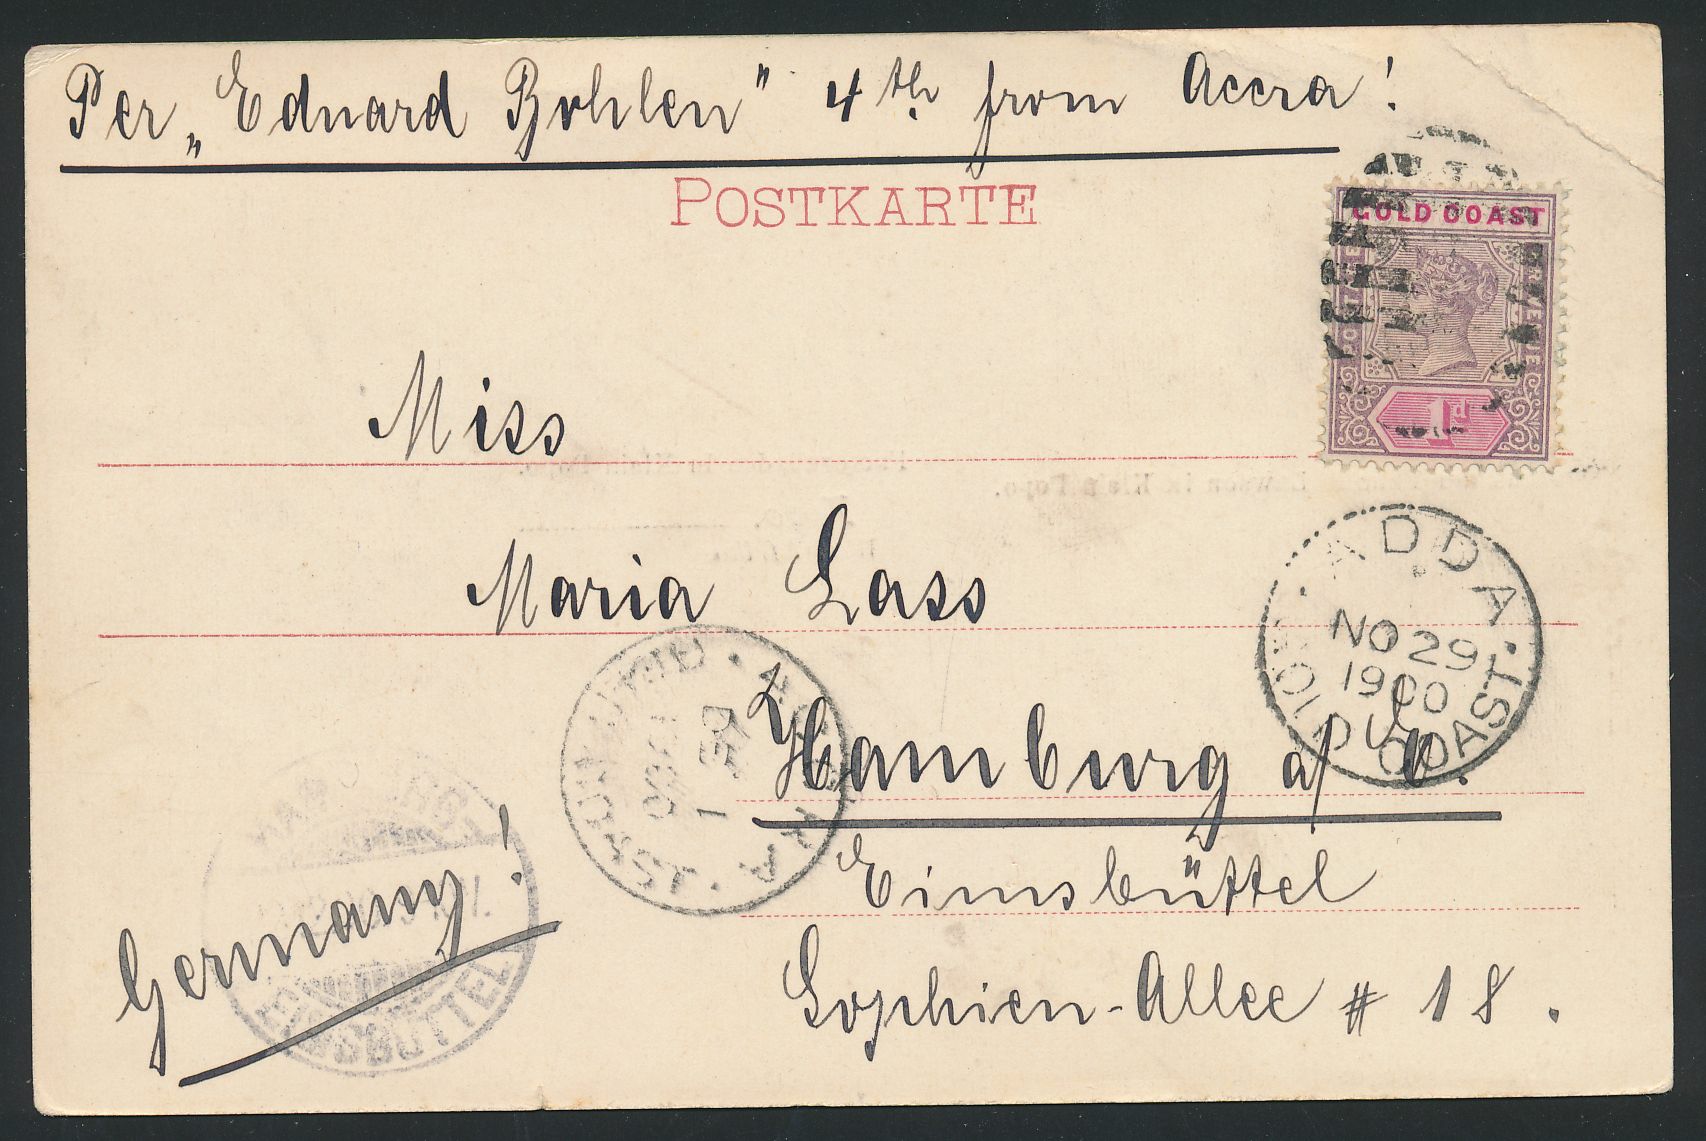 Per „Eduard Bohlen" 4th from Accra!
POSTKARTE
GOLD COAST
POSTAGE
REVENUE
1d
Miss
Maria Lass
Hamburg a/E.
Eimsbüttel
Sophien-Allee # 18.
Germany!
ADDA
NO 29
1900
GOLD COAST
ACCRA
DE
1
1900
GOLD COAST
HAMBURG
EIMSBÜTTEL